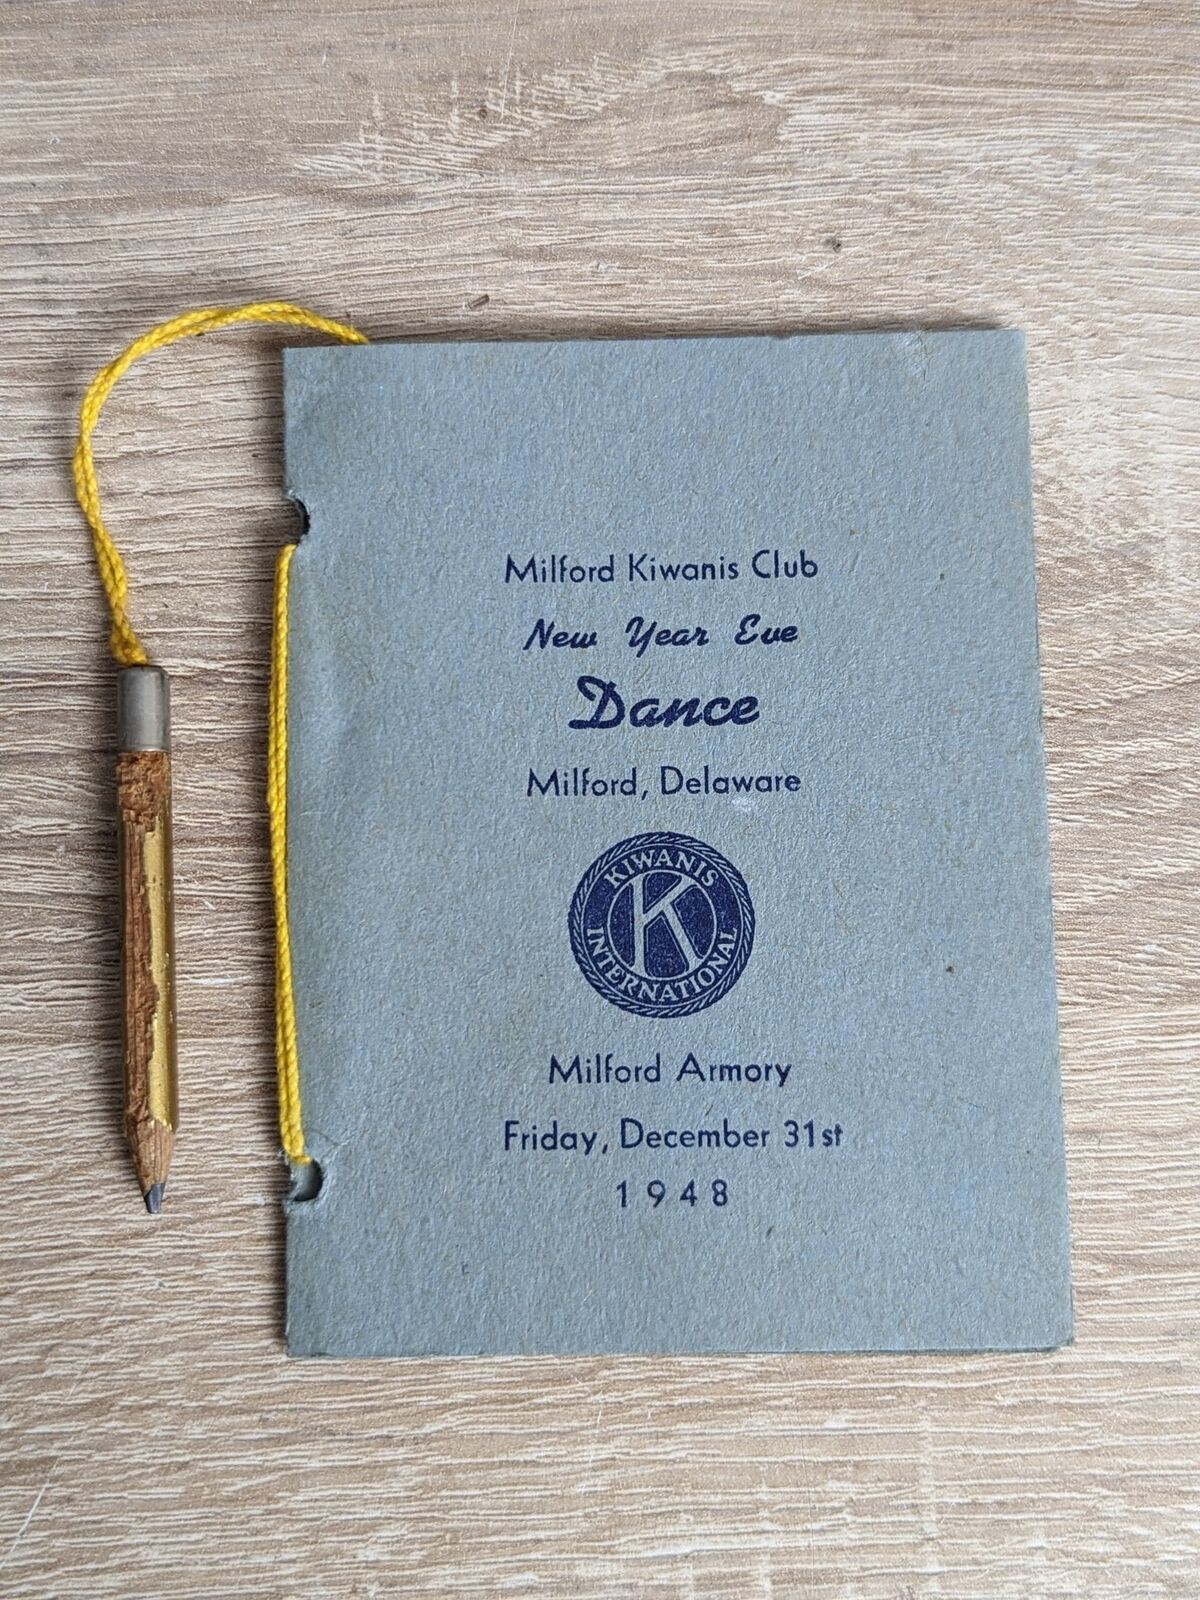 Milford Kiwanis Club
New Year Eve
Dance
Milford, Delaware
KIWANIS
K
INTERNATIONAL
Milford Armory
Friday, December 31st
1948